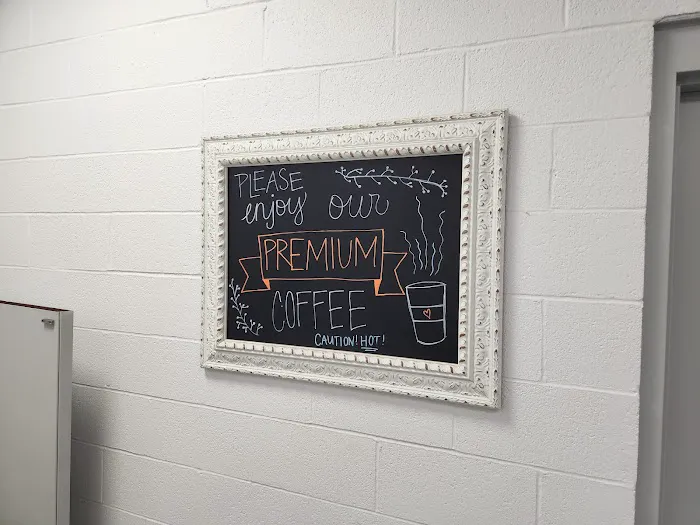 PLEASE
enjoy our
PREMIUM
COFFEE
CAUTION! HOT!